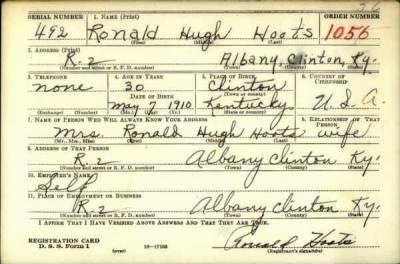 SERIAL NUMBER 1. NAME (Print) ORDER NUMBER
492 Ronald Hugh Hoots 1056
(First) (Middle) (Last)
2. ADDRESS (Print)
R.2 Albany, Clinton, Ky.
(Number and street or R. F. D. number) (Town) (County) (State)
3. TELEPHONE 4. AGE IN YEARS 5. PLACE OF BIRTH 6. COUNTRY OF CITIZENSHIP
none 30 Clinton
DATE OF BIRTH (Town or county)
May 7 1910 Kentucky U.S.A.
(Mo.) (Day) (Yr.) (State or country)
7. NAME OF PERSON WHO WILL ALWAYS KNOW YOUR ADDRESS 8. RELATIONSHIP OF THAT PERSON
Mrs. Ronald Hugh Hoots wife
(Mr., Mrs., Miss) (First) (Middle) (Last)
9. ADDRESS OF THAT PERSON
R.2 Albany Clinton Ky.
(Number and street or R. F. D. number) (Town) (County) (State)
10. EMPLOYER'S NAME
Self
11. PLACE OF EMPLOYMENT OR BUSINESS
R.2 Albany Clinton Ky.
(Number and street or R. F. D. number) (Town) (County) (State)
I AFFIRM THAT I HAVE VERIFIED ABOVE ANSWERS AND THAT THEY ARE TRUE.
REGISTRATION CARD
D. S. S. Form 1 (over) Ronald Hoots
(Registrant's signature)